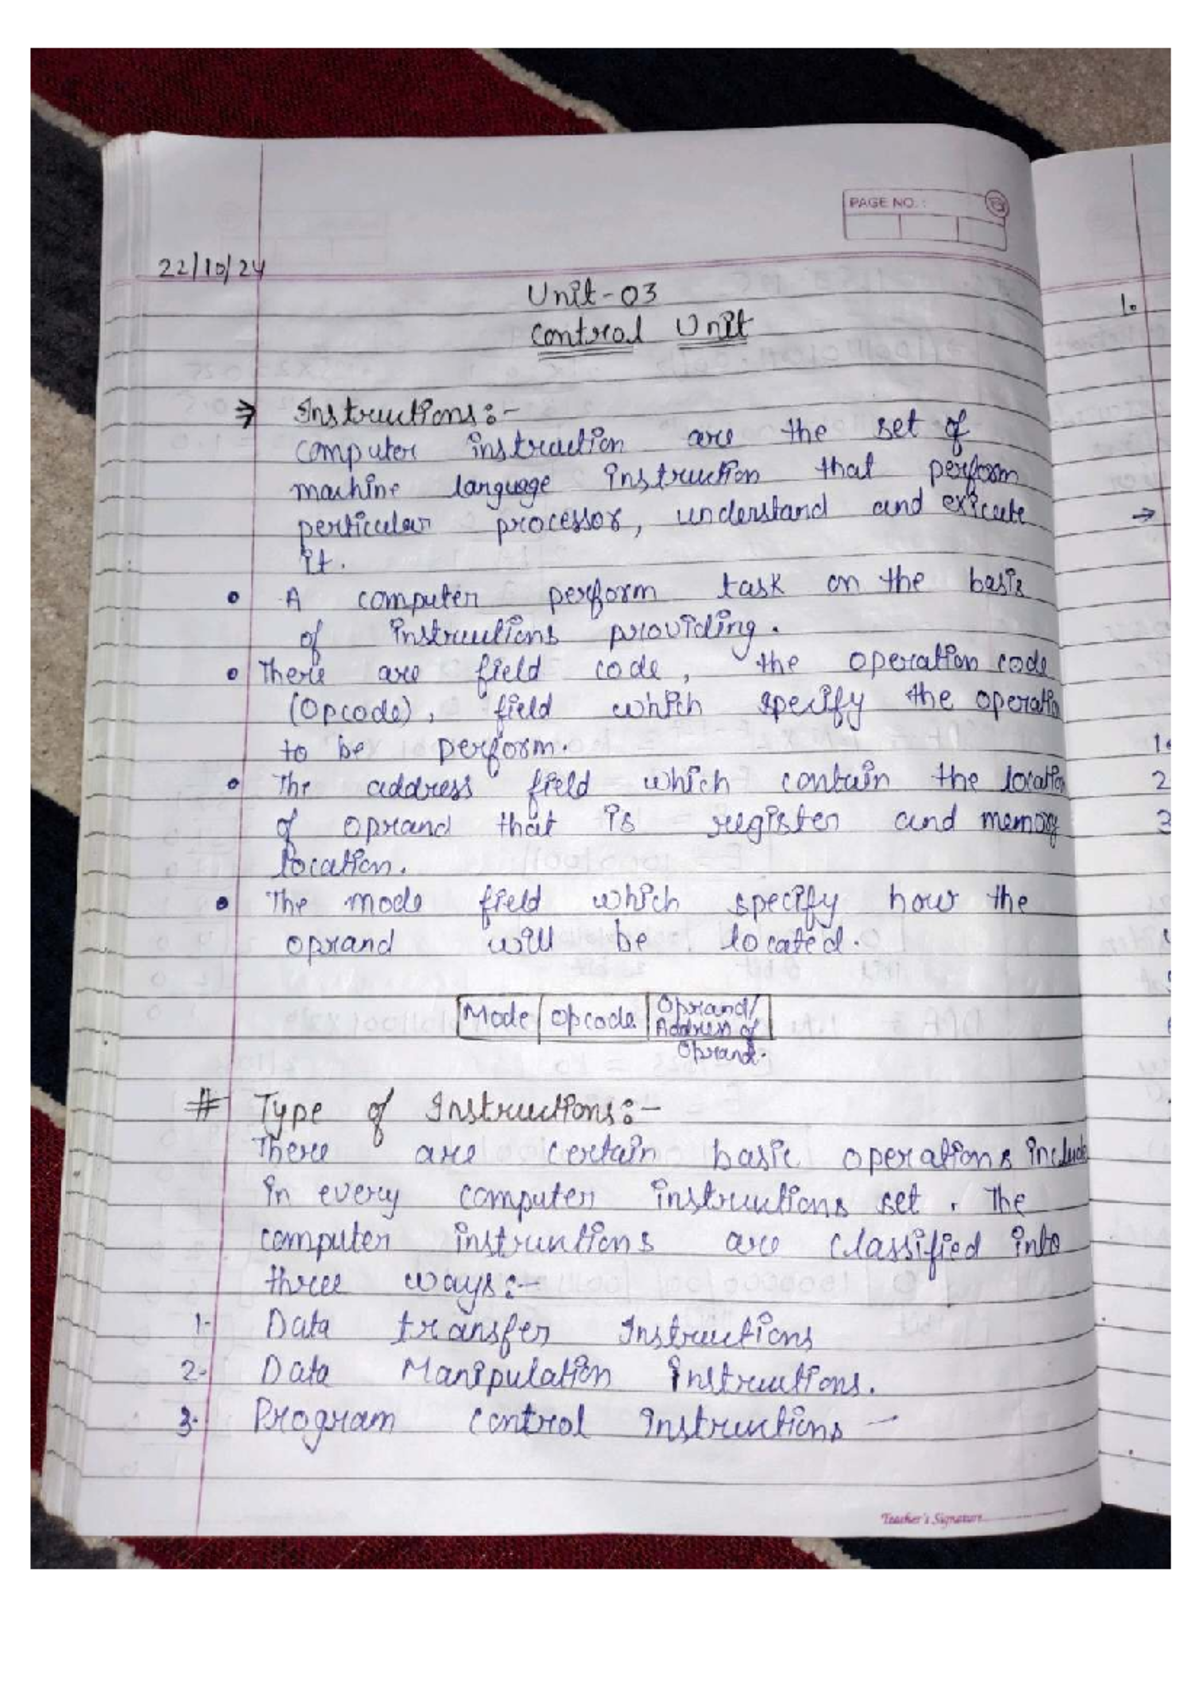 PAGE NO. :
22/10/24
Unit-03
Control Unit
⇒ Instructions:-
Computer instruction are the set of
machine language instruction that perform
perticular processor, understand and exicute
it.
• A computer perform task on the basis
of instructions providing.
• There are field code, the operation code
(Opcode), field which specify the operatio
to be perform.
• The address field which contain the location
of oprand that is register and memory
location.
• The mode field which specify how the
oprand will be located.
Mode opcode Oprand/
Address of
Oprand.
# Type of Instructions:-
There are certain basic operations include
in every computer instructions set. The
computer instructions are classified into
three ways:-
1- Data transfer Instructions
2- Data Manipulation instructions.
3- Program control instructions -
Teacher's Signature
1.
→
1.
2
3